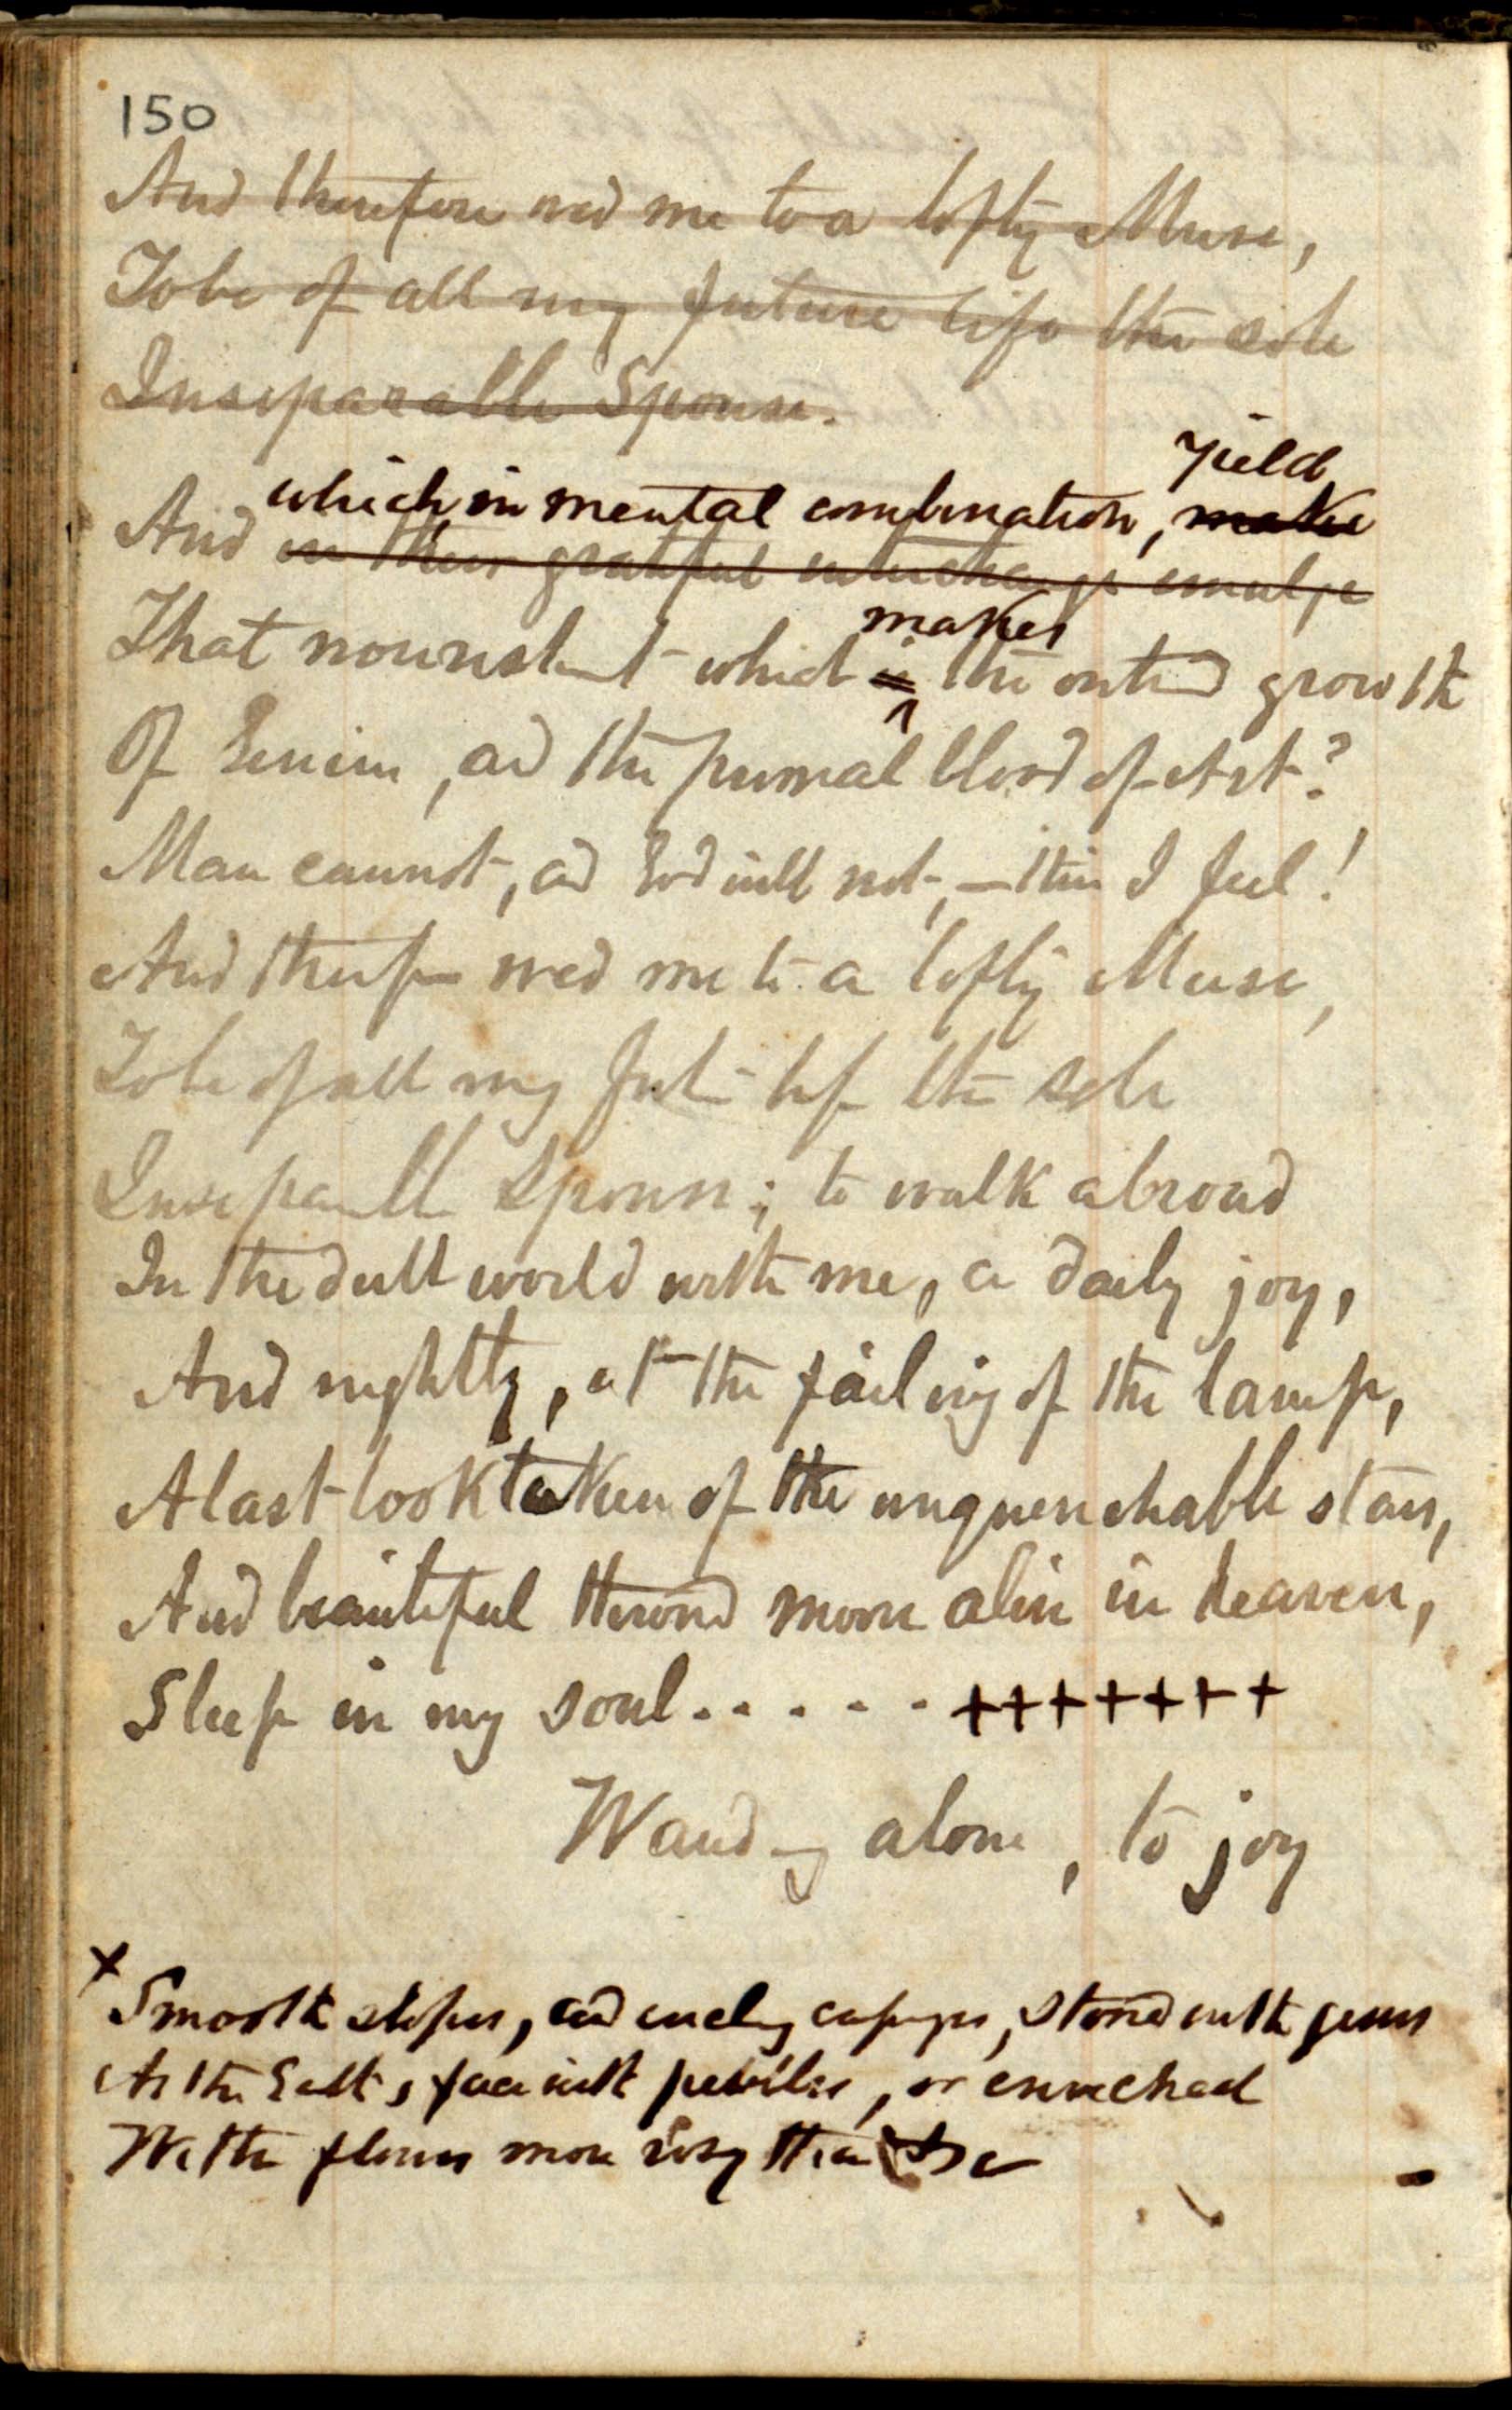 150
And therefore wed me to a lofty Muse,
To be of all my future life the sole
Inseparable Spouse.
yield
which, in mental combination, make
And in their grateful interchange emulge
makes
That nourishment which is the outward growth
Of Genius, and the primal blood of Art?
Man cannot, and God will not, — this I feel!
And therefore wed me to a lofty Muse,
To be of all my future life the sole
Inseparable Spouse; to walk abroad
In the dull world with me, a daily joy,
And nightly, at the failing of the lamp,
A last look taken of the unquenchable stars,
And beautiful throned moon alive in heaven,
Sleep in my soul...... + + + + + + +
Wandering alone, to joy
x
Smooth slopes, and curly, stored with gems
As the with pebbles, or enriched
With flowers more rosy than